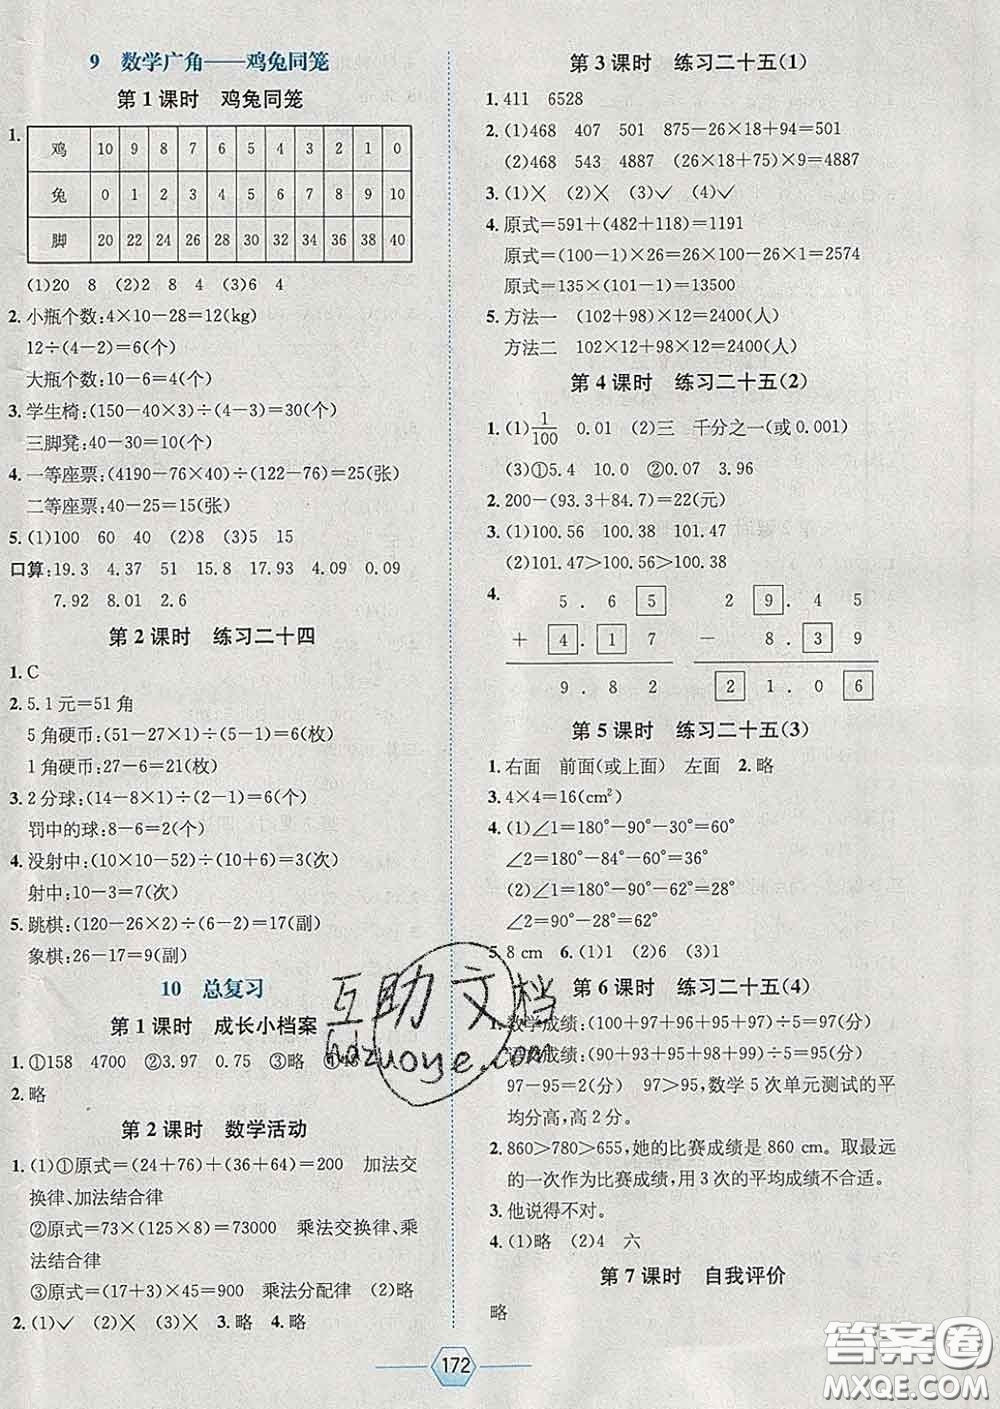 9 数学广角——鸡兔同笼
第1课时 鸡兔同笼
1.
鸡 10 9 8 7 6 5 4 3 2 1 0
兔 0 1 2 3 4 5 6 7 8 9 10
脚 20 22 24 26 28 30 32 34 36 38 40
(1)20 8 (2)2 8 4 (3)6 4
2.小瓶个数:4×10－28＝12(kg)
12÷(4－2)＝6(个)
大瓶个数:10－6＝4(个)
3.学生椅:(150－40×3)÷(4－3)＝30(个)
三脚凳:40－30＝10(个)
4.一等座票:(4190－76×40)÷(122－76)＝25(张)
二等座票:40－25＝15(张)
5.(1)100 60 40 (2)8 (3)5 15
口算:19.3 4.37 51 15.8 17.93 4.04 0.09
7.92 8.01 2.6
第2课时 练习二十四
1.C
2.5.1元＝51角
5角硬币:(51－27×1)÷(5－1)＝6(枚)
1角硬币:27－6＝21(枚)
3.2分球:(14－8×1)÷(2－1)＝6(个)
罚中的球:8－6＝2(个)
4.没射中:(10×10－52)÷(10＋6)＝3(次)
射中:10－3＝7(次)
5.跳棋:(120－26×2)÷(6－2)＝17(副)
象棋:26－17＝9(副)
10 总复习
第1课时 成长小档案
1.①158 4700 ②3.97 0.75 ③略
2.略
第2课时 数学活动
1.(1)①原式＝(24＋76)＋(36＋64)＝200 加法交
换律、加法结合律
②原式＝73×(125×8)＝73000 乘法交换律、乘
法结合律
③原式＝(17＋3)×45＝900 乘法分配律 (2)略
2.(1)✓ (2)✕ (3)✕ 3.略 4.略
第3课时 练习二十五(1)
1.411 6528
2.(1)468 407 501 875－26×18＋94＝501
(2)468 543 4887 (26×18＋75)×9＝4887
3.(1)✕ (2)✕ (3)✓ (4)✓
4.原式＝591＋(482＋118)＝1191
原式＝(100－1)×26＝26×100－26×1＝2574
原式＝135×(101－1)＝13500
5.方法一 (102＋98)×12＝2400(人)
方法二 102×12＋98×12＝2400(人)
第4课时 练习二十五(2)
1.(1)1/100 0.01 (2)三 千分之一(或0.001)
(3)①5.4 10.0 ②0.07 3.96
2.200－(93.3＋84.7)＝22(元)
3.(1)100.56 100.38 100.56
(2)101.80＞100.56＞100.38
4. 5.6 5 2 9.4 5
＋ 4.1 7 － 8.3 9
9.8 2 2 1.0 6
第5课时 练习二十五(3)
1.右面 前面(或上面) 左面 2.略
3.4×4＝16(cm²)
4.(1)∠1＝180°－90°－30°＝60°
∠2＝180°－84°－60°＝36°
(2)∠1＝180°－90°－62°＝28°
∠2＝90°－28°＝62°
5.8 cm 6.(1)1 (2)6 (3)1
第6课时 练习二十五(4)
1.数学成绩:(100＋97＋96＋95＋97)÷5＝97(分)
成绩:(90＋93＋95＋98＋99)÷5＝95(分)
97－95＝2(分) 97＞95,数学5次单元测试的平
均分高,高2分。
2.860＞780＞655,她的比赛成绩是860 cm。取最远
的一次作为比赛成绩,用3次的平均成绩不合适。
3.他说得不对。
4.(1)略 (2)4 六
第7课时 自我评价
略
172
互助文档
hdzuoye.com
答案圈
MXQE.COM